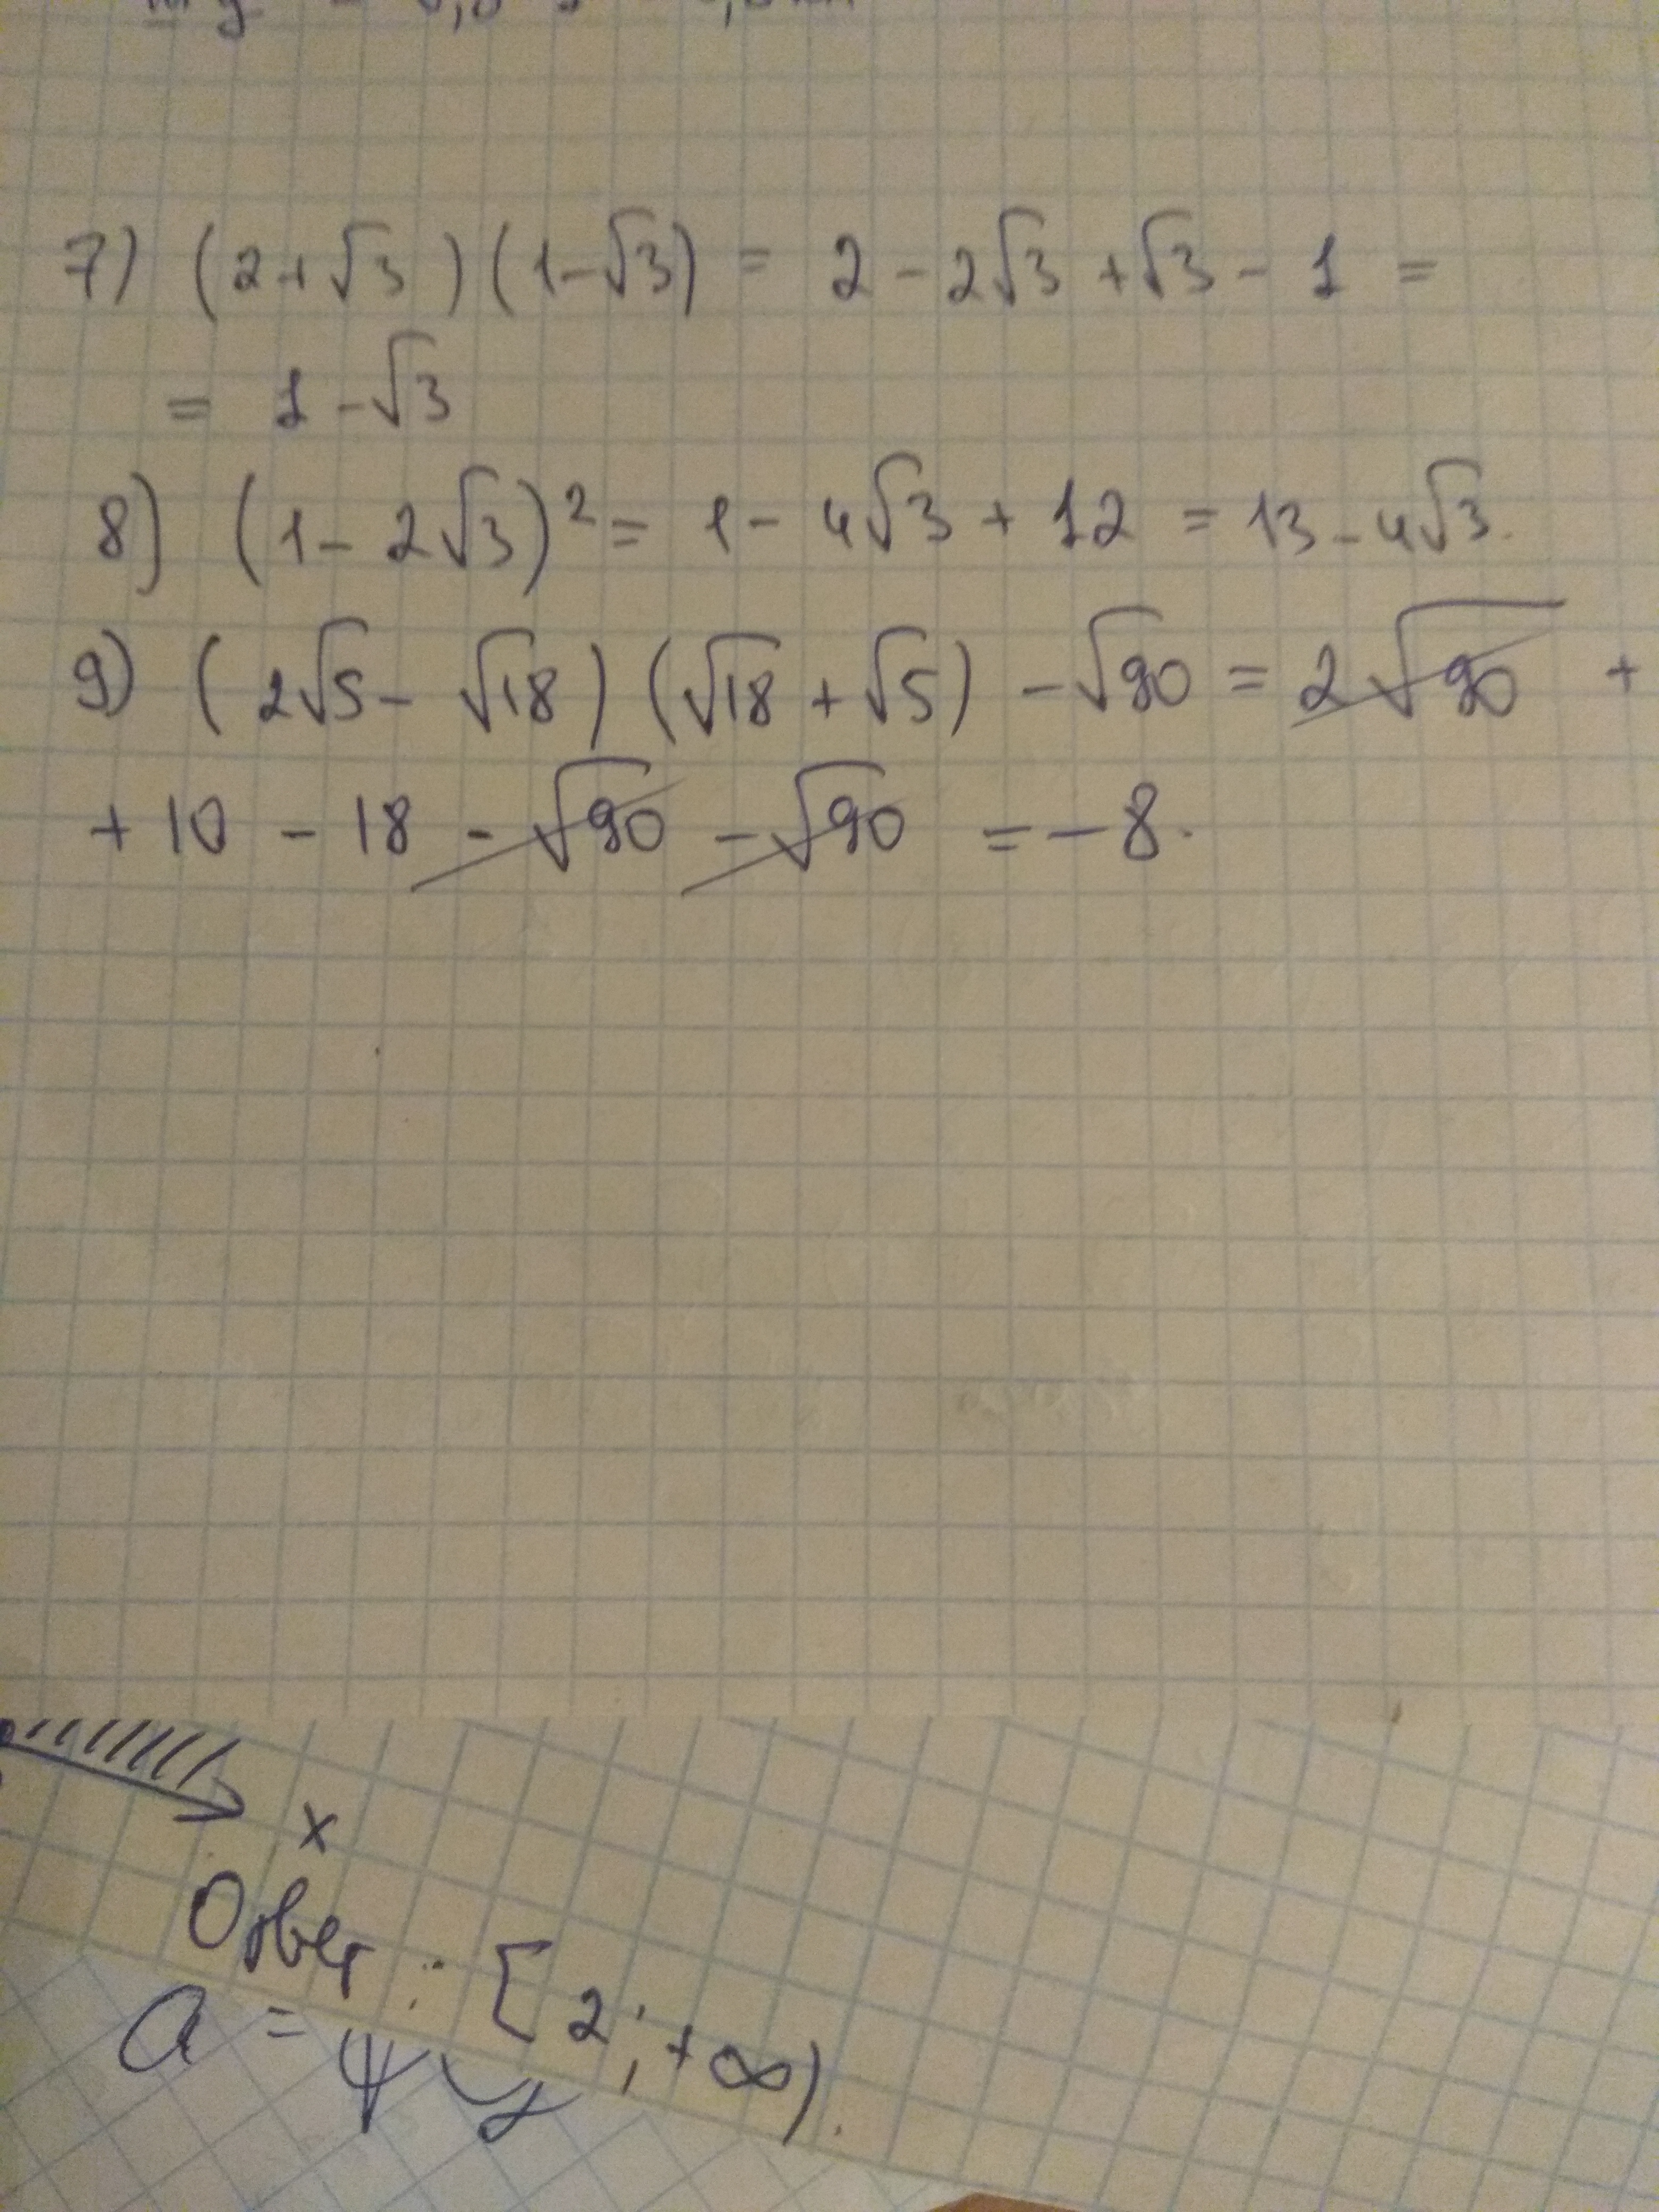 7) (2+√3)(1-√3) = 2 - 2√3 + √3 - 1 =
= 1 - √3
8) (1 - 2√3)² = 1 - 4√3 + 12 = 13 - 4√3.
9) (2√5 - √18)(√18 + √5) - √90 = 2√90 +
+ 10 - 18 - √90 - √90 = -8.
x
Ответ: [2; +∞).
a =